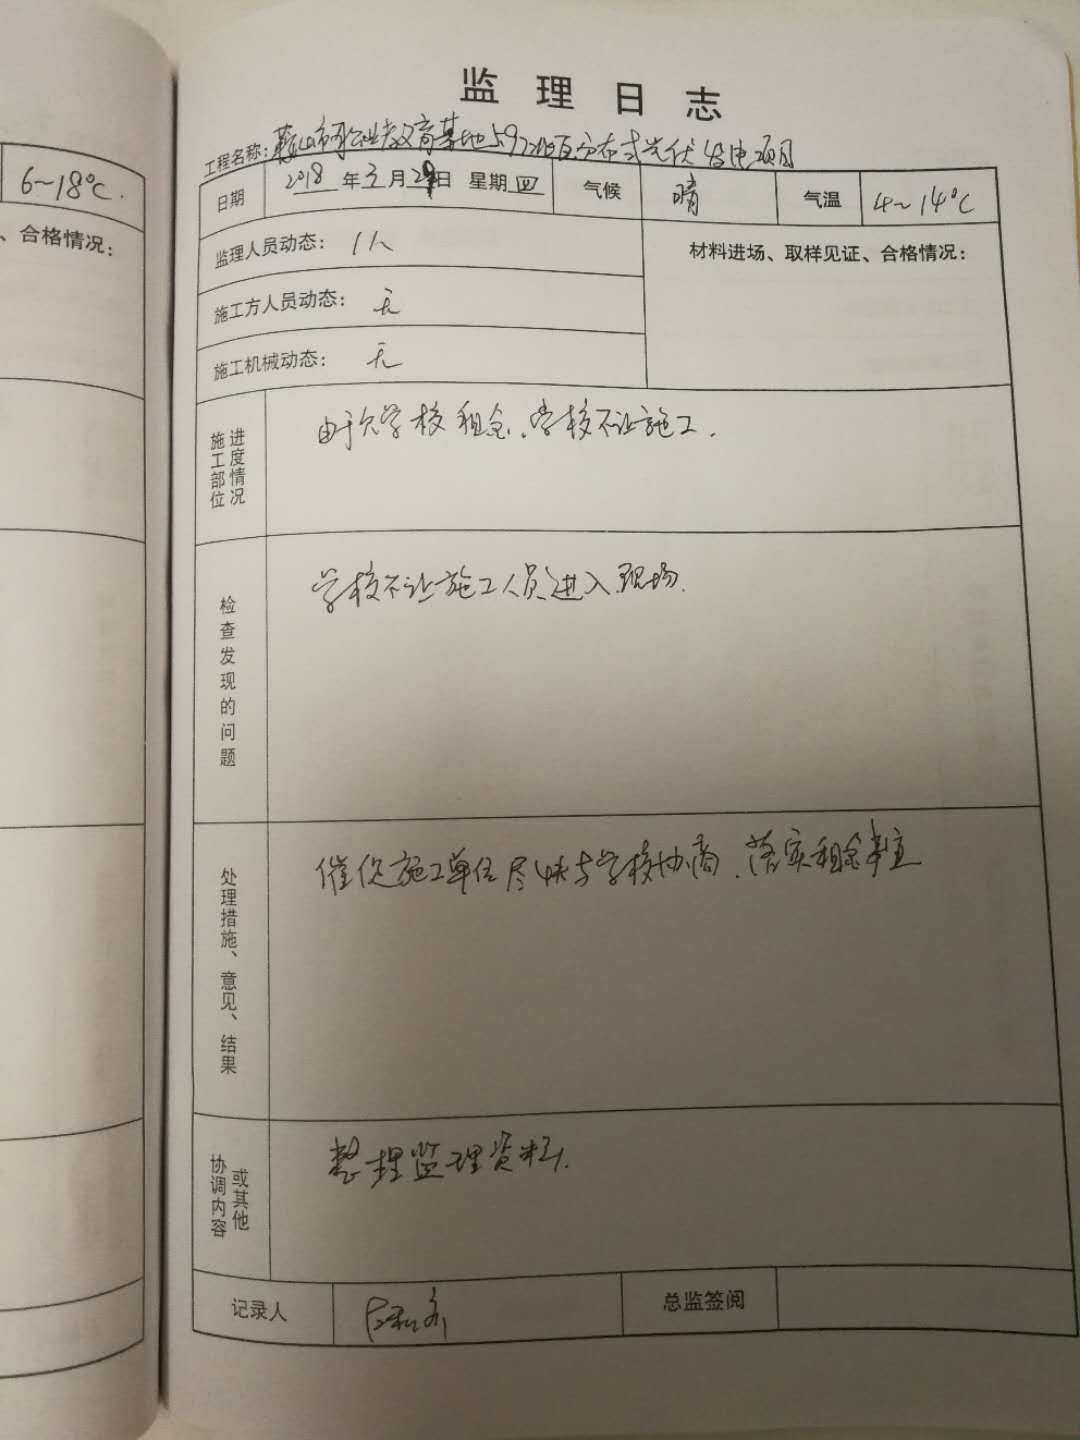 监理日志
工程名称：鞍山市职业教育基地597千瓦分布式光伏发电项目
日期 2018年3月29日 星期四 气候 晴 气温 4~14℃
监理人员动态：1人
材料进场、取样见证、合格情况：
施工方人员动态：无
施工机械动态：无
施工部位进度情况
由于欠学校租金，学校不让施工.
检查发现的问题
学校不让施工人员进入现场.
处理措施、意见、结果
催促施工单位尽快与学校协商，落实租金事宜
协调内容或其他
整理监理资料.
记录人
总监签阅
6~18℃.
、合格情况：